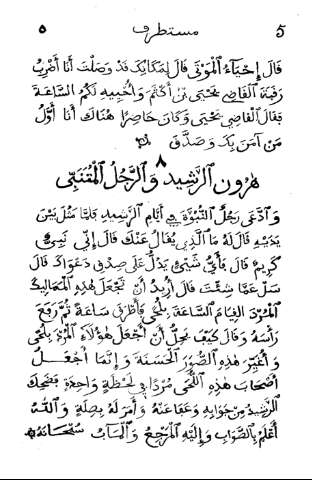 5 مستطرف ٥
قال إحياء الموتى قال لمكانك قد وصلت أنا أضرب
رقبة القاضي يحيى بن أكثم وأحييه لكم الساعة
فقال القاضي يحيى وكان حاضرا هناك أنا أول
من آمن بك وصدق
٨
هرون الرشيد والرجل المتنبي
وادعى رجل النبوة في أيام الرشيد فلما مثل بين
يديه قال له ما الذي يقال عنك قال إني نبي
كريم قال فأي شيء يدل على صدق دعواك قال
سل عما شئت قال أريد أن تجعل هذه المماليك
المرد القيام الساعة بلحى فأطرق ساعة ثم رفع
رأسه وقال كيف يحل أن أجعل هؤلاء المرد بلحى
وأغير هذه الصور الحسنة وإنما أجعل
أصحاب هذه اللحى مردا في لحظة واحدة فضحك
الرشيد من جوابه وعفا عنه وأمر له بصلة والله
أعلم بالصواب وإليه المرجع والمآب سبحانه